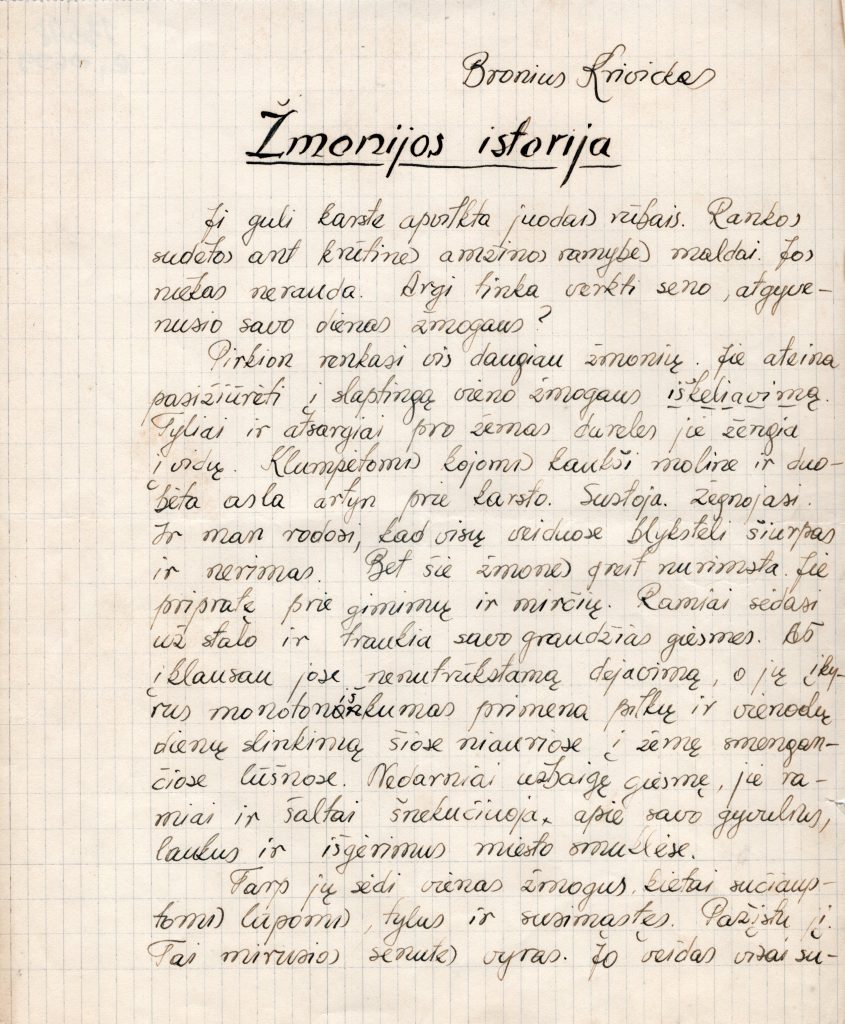 Bronius Krivickas
Žmonijos istorija
Ji guli karste apvilkta juodais rūbais. Rankos
sudėtos ant krūtinės amžinos ramybės maldai. Jos
niekas nerauda. Argi tinka verkti seno, atgyve-
nusio savo dienas žmogaus?
Pirkion renkasi vis daugiau žmonių. Jie ateina
pasižiūrėti į slaptingą vieno žmogaus iškeliavimą.
Tyliai ir atsargiai pro žemas dureles jie žengia
į vidų. Klumpėtomis kojomis kaukši moline ir duo-
bėta asla artyn prie karsto. Sustoja. Žegnojasi.
Ir man rodosi, kad visų veiduose blyksteli šiurpas
ir nerimas. Bet šie žmonės greit nurimsta. Jie
pripratę prie gimimų ir mirčių. Ramiai sėdasi
už stalo ir traukia savo graudžias giesmes. Aš
įklausau jose nenutrūkstamą dejavimą, o jų įky-
rus monotoniškumas primena pilkų ir vienodų
dienų slinkimą šiose niauriose į žemę smengan-
čiose lūšnose. Nedarniai užbaigę giesmę, jie ra-
miai ir šaltai šnekučiuoja apie savo gyvulius,
laukus ir išgėrimus miesto smuklėse.
Tarp jų sėdi vienas žmogus kietai sučiaup-
tomis lūpomis, tylus ir susimąstęs. Pažįstu jį.
Tai mirusios senutės vyras. Jo veidas visai su-